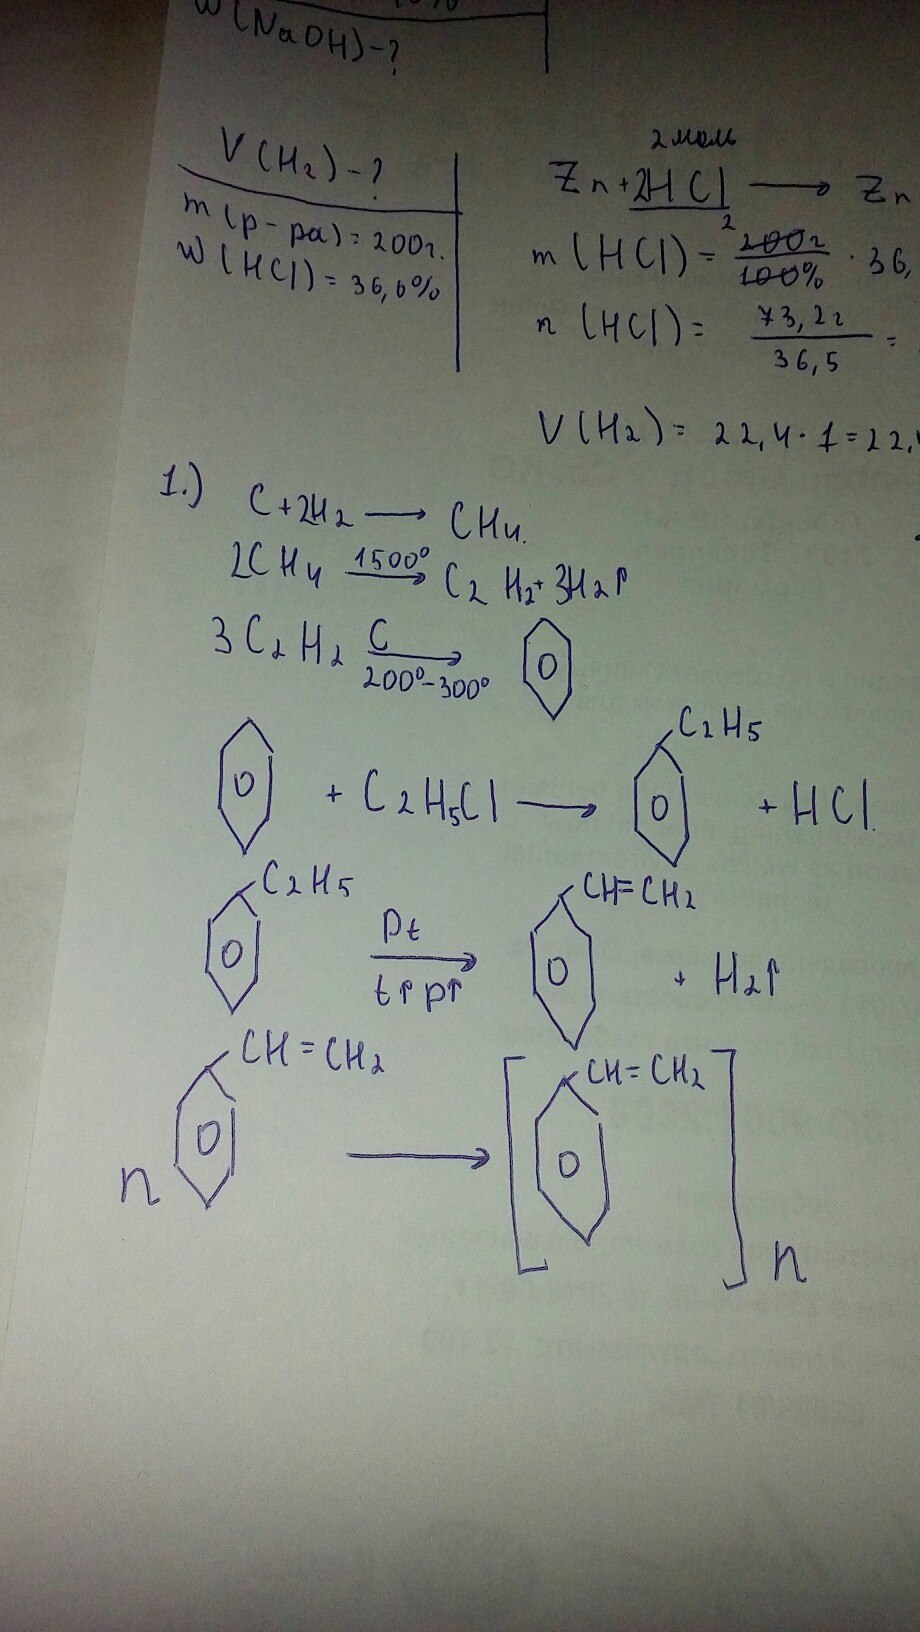 W(NaOH)-?
V(H2)-?
m(р-ра)=200г.
W(HCl)=36,6%
2моль
Zn+2HCl → Zn
m(HCl)= 200г/100% · 36,
2
n(HCl)= 73,2г/36,5 =
V(H2)= 22,4·1=22,4
1.) C+2H2 → CH4.
2CH4 1500° → C2H2+3H2↑
3C2H2 C → 200°-300°
C2H5
+ C2H5Cl → + HCl.
C2H5 Pt → t↑ p↑ CH=CH2 + H2↑
n CH=CH2 → [ CH=CH2 ] n